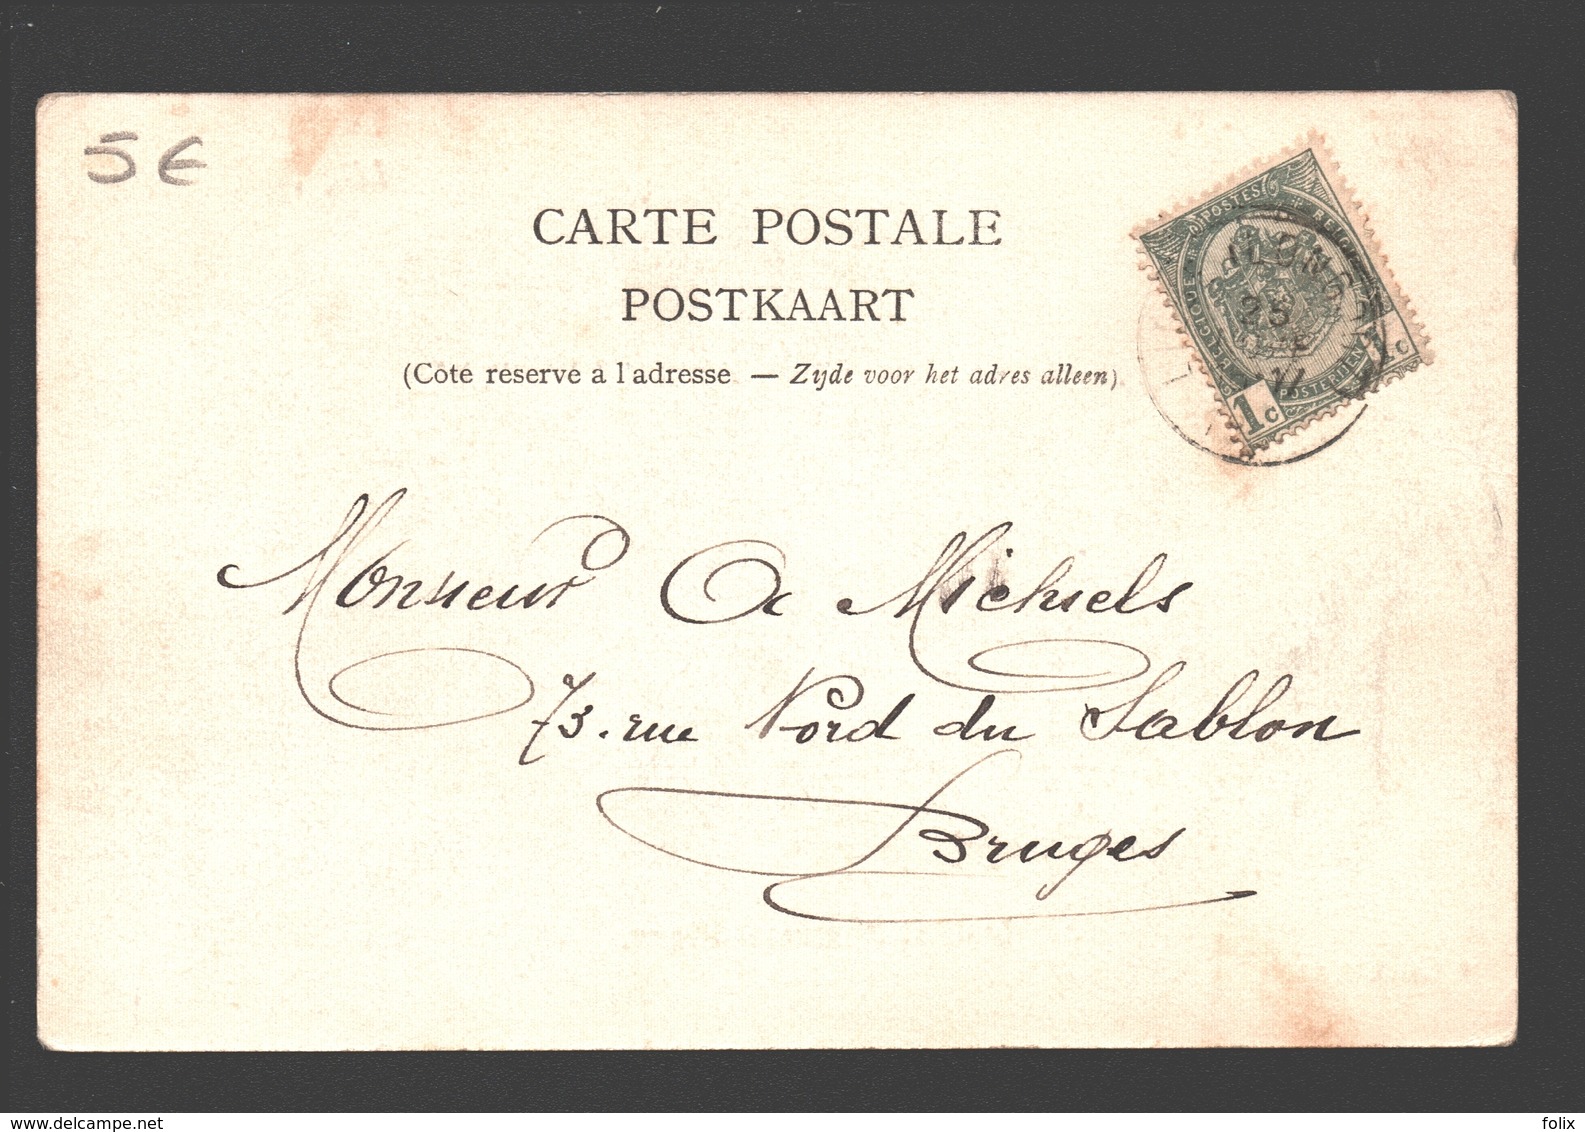 5 €
CARTE POSTALE
POSTKAART
(Cote reserve a l'adresse — Zijde voor het adres alleen)
POSTES
BELGIQUE
BELGIE
POSTERIJEN
1c
1c
25
Monsieur A Michiels
73. rue Nord du Sablon
Bruges
www.delcampe.net
folix